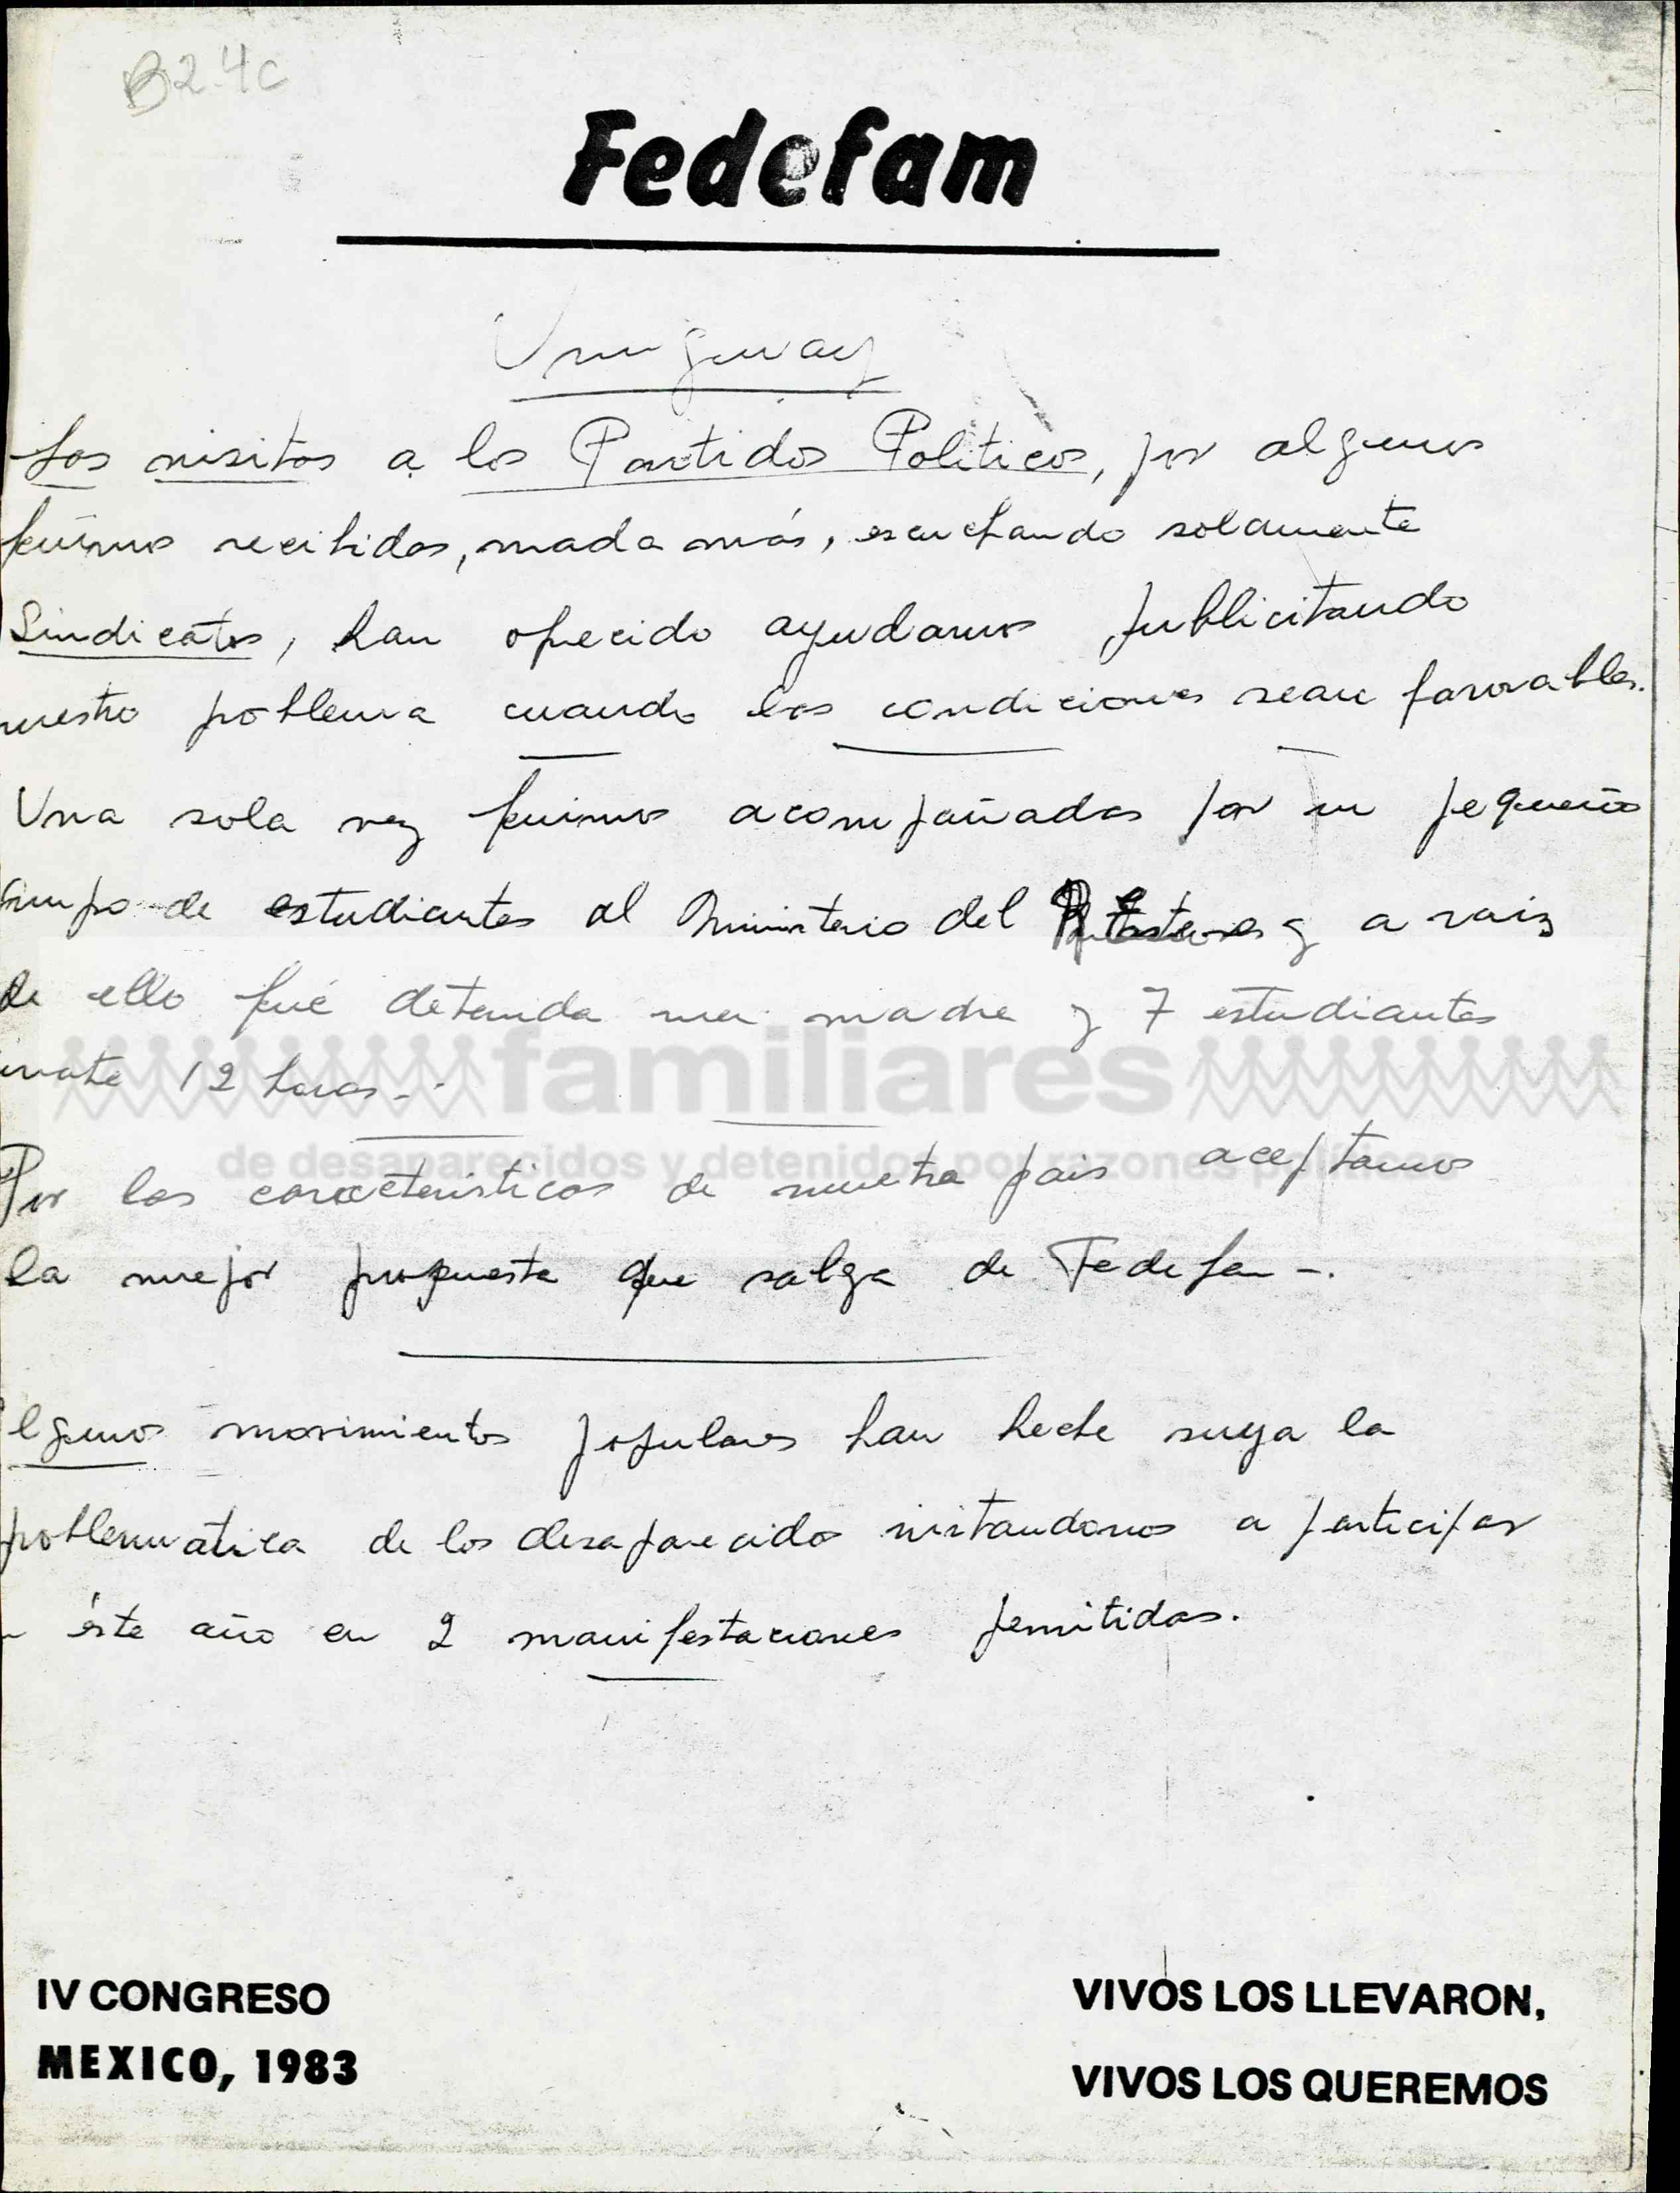 B2.4c
Fedefam
Uruguay
Las visitas a los Partidos Politicos, por algunos
fuimos recibidos, nada más, escuchando solamente
Sindicatos, han ofrecido ayudarnos publicitando
nuestro problema cuando las condiciones sean favorables.
Una sola vez fuimos acompañados por un pequeño
grupo de estudiantes al Ministerio del y a raiz
de ello fué detenida una madre y 7 estudiantes
12 horas.-
familiares
de desaparecidos y detenidos por razones políticas
Por las caracteristicas de nuestro pais aceptamos
la mejor propuesta que salga de Fedefam -.
lgunos movimientos populares han hecho suya la
problematica de los desaparecidos invitandonos a participar
éste año en 2 manifestaciones permitidas.
IV CONGRESO
MEXICO, 1983
VIVOS LOS LLEVARON,
VIVOS LOS QUEREMOS